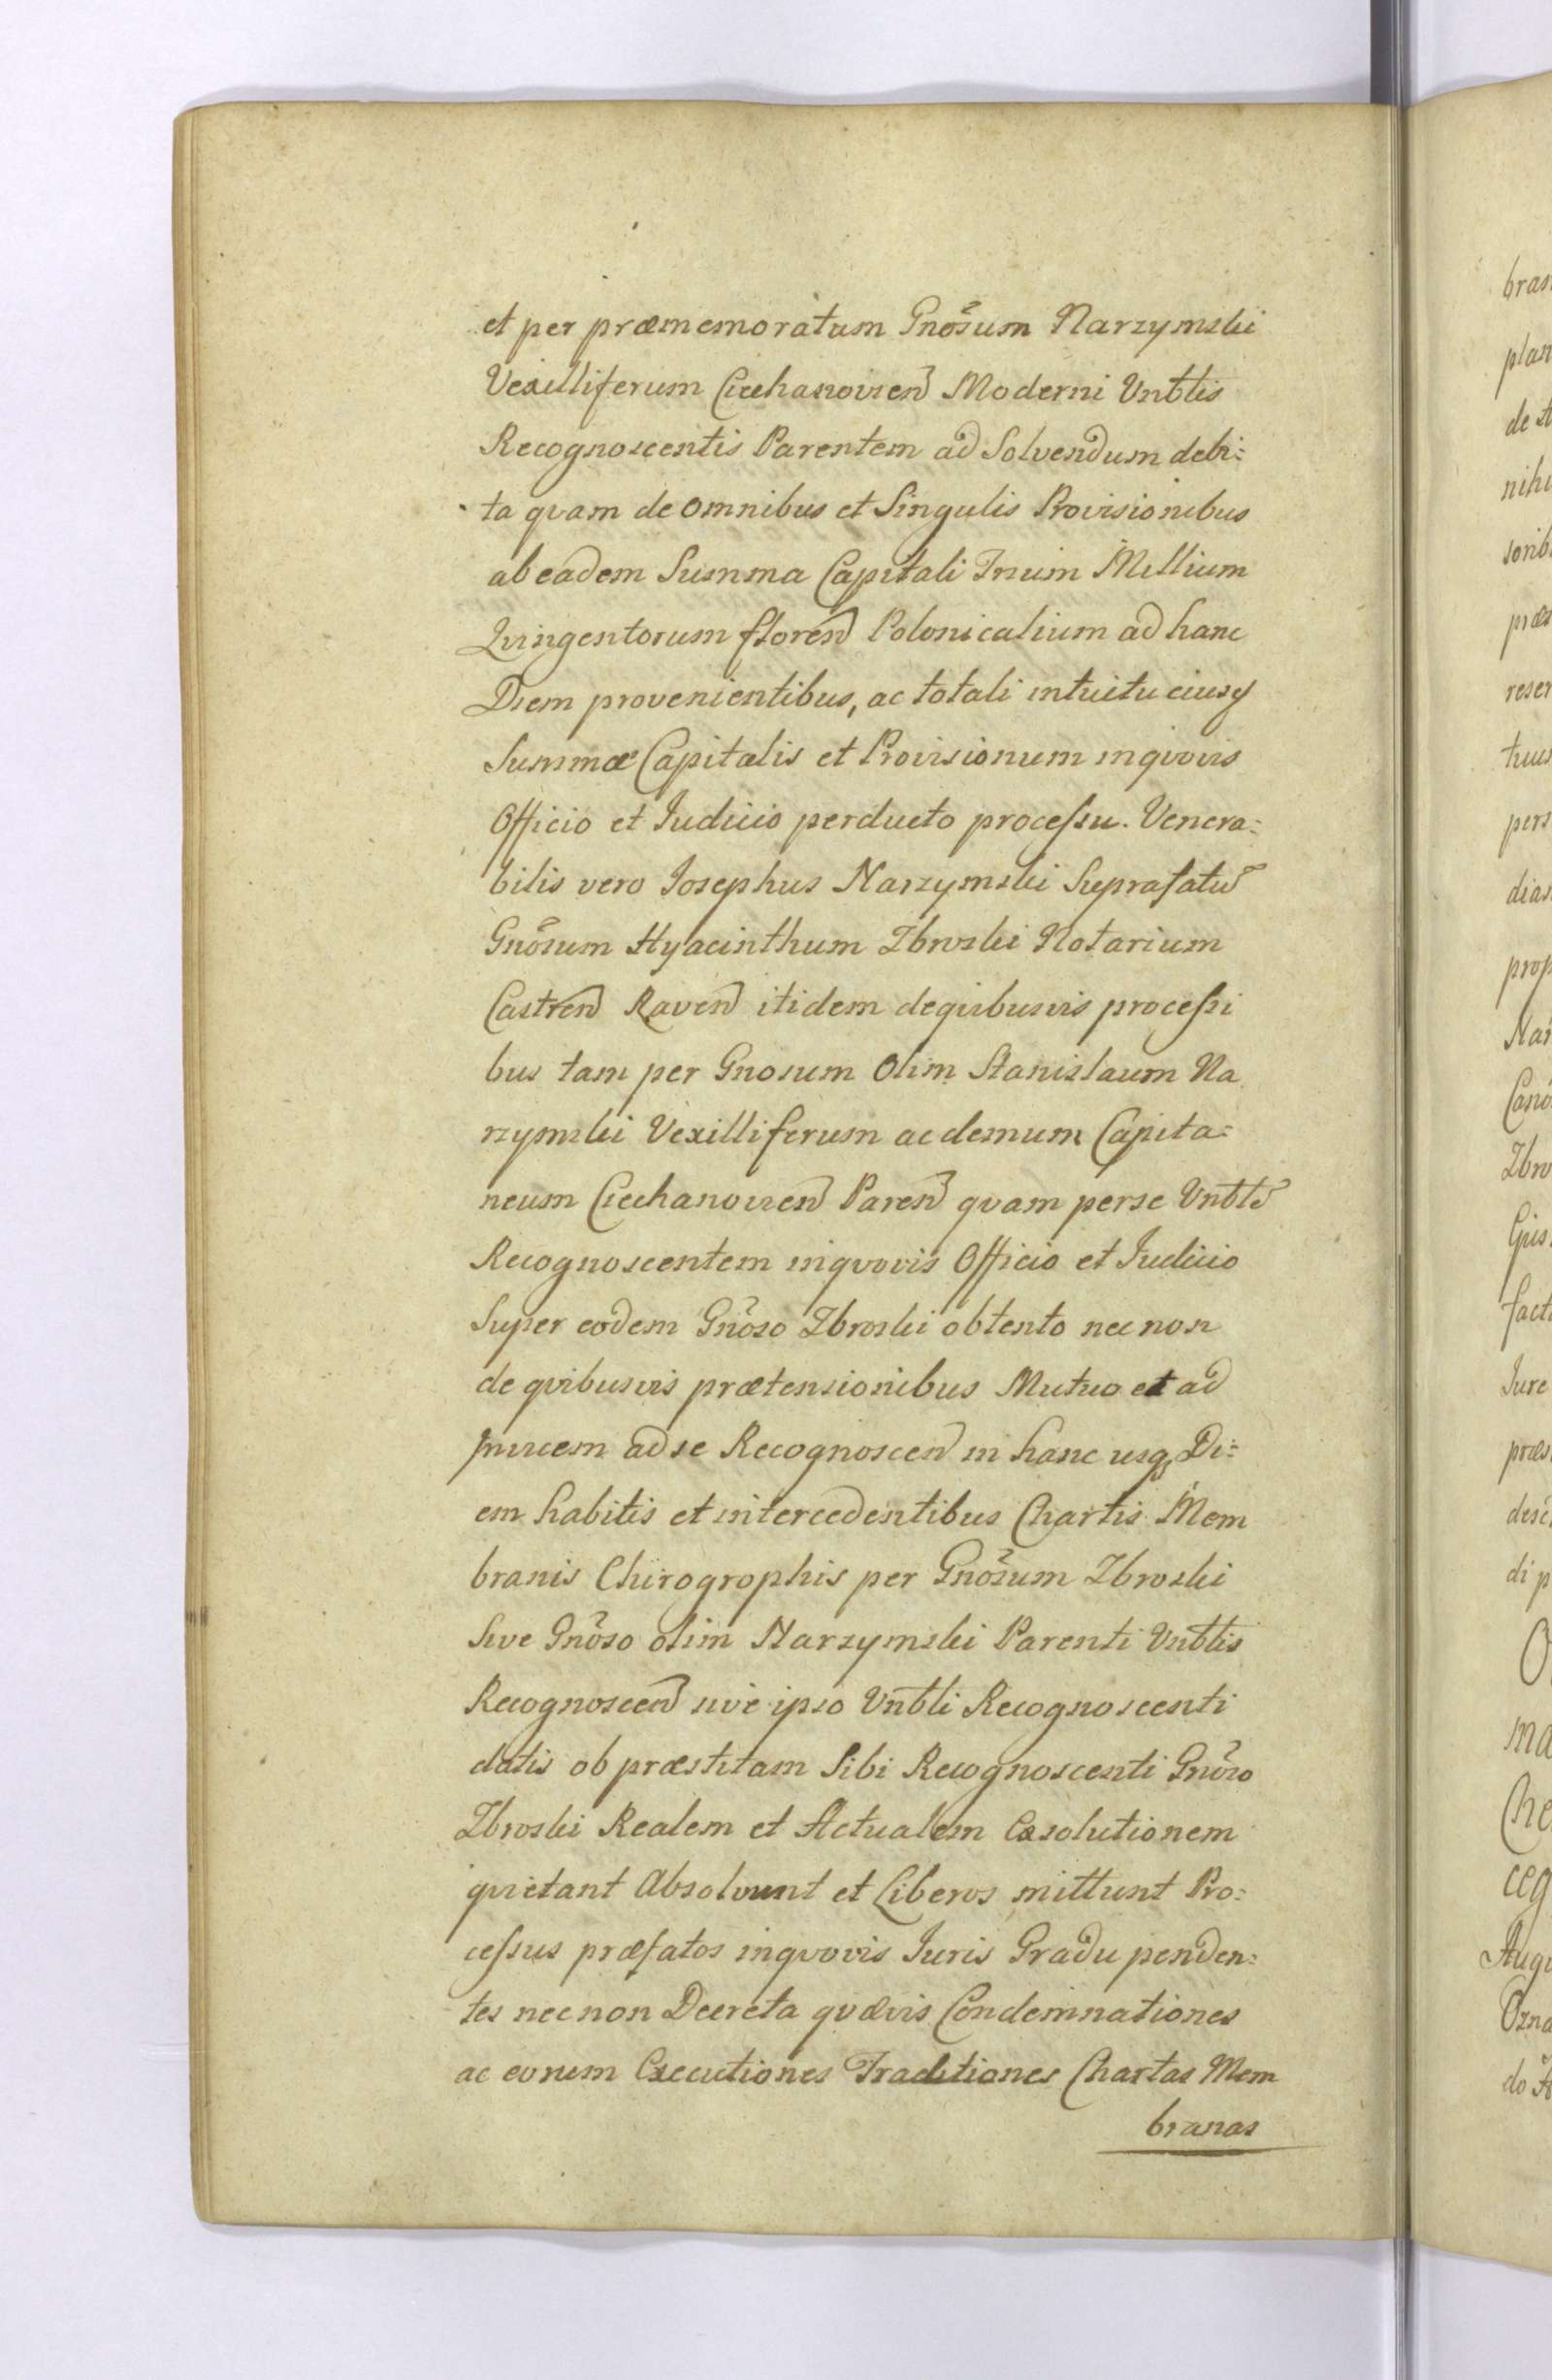 et per præmemoratum Gnõsum Narzymski
Vexilliferum Ciechanovien Moderni Vnbtis
Recognoscentis Parentem ad Solvendum debi:
ta qvam de omnibus et Singulis Provisionibus
ab eadem Summa Capitali Trium Millium
Qvingentorum floren Polonicalium ad hanc
Diem provenientibus, ac totali intuitu eiusq
Summæ Capitalis et Provisionum inqvovis
Officio et Iudicio perducto processu. Venera:
bilis vero Iosephus Narzymski Suprafatus
Gnõsum Hyacinthum Zbroski Notarium
Castren Raven itidem deqvibusvis processi
bus tam per Gnosum Olim Stanislaum Na
rzymski Vexilliferum ac demum Capita:
neum Ciechanovien Paren qvam perse Vnbtẽ
Recognoscentem inqvovis Officio et Iudicio
Super eodem Gnõso Zbroski obtento nec non
de qvibusvis prætensionibus Mutuo et ad
invicem ad se Recognoscen in hanc usq Di:
em habitis et intercedentibus Chartis Mem
branis Chirogrophis per Gnõsum Zbroski
Sive Gnõso olim Narzymski Parenti Vnbtis
Recognoscen sive ipso Vnbti Recognoscenti
datis ob præstitam Sibi Recognoscenti Gnõso
Zbroski Realem et Actualem Exsolutionem
qvietant Absolvunt et Liberos mittunt Pro:
cessus præfatos inqvovis Iuris Gradu penden:
tes nec non Decreta qvævis Condemnationes
ac eorum Executiones Traditiones Chartas Mem
branas